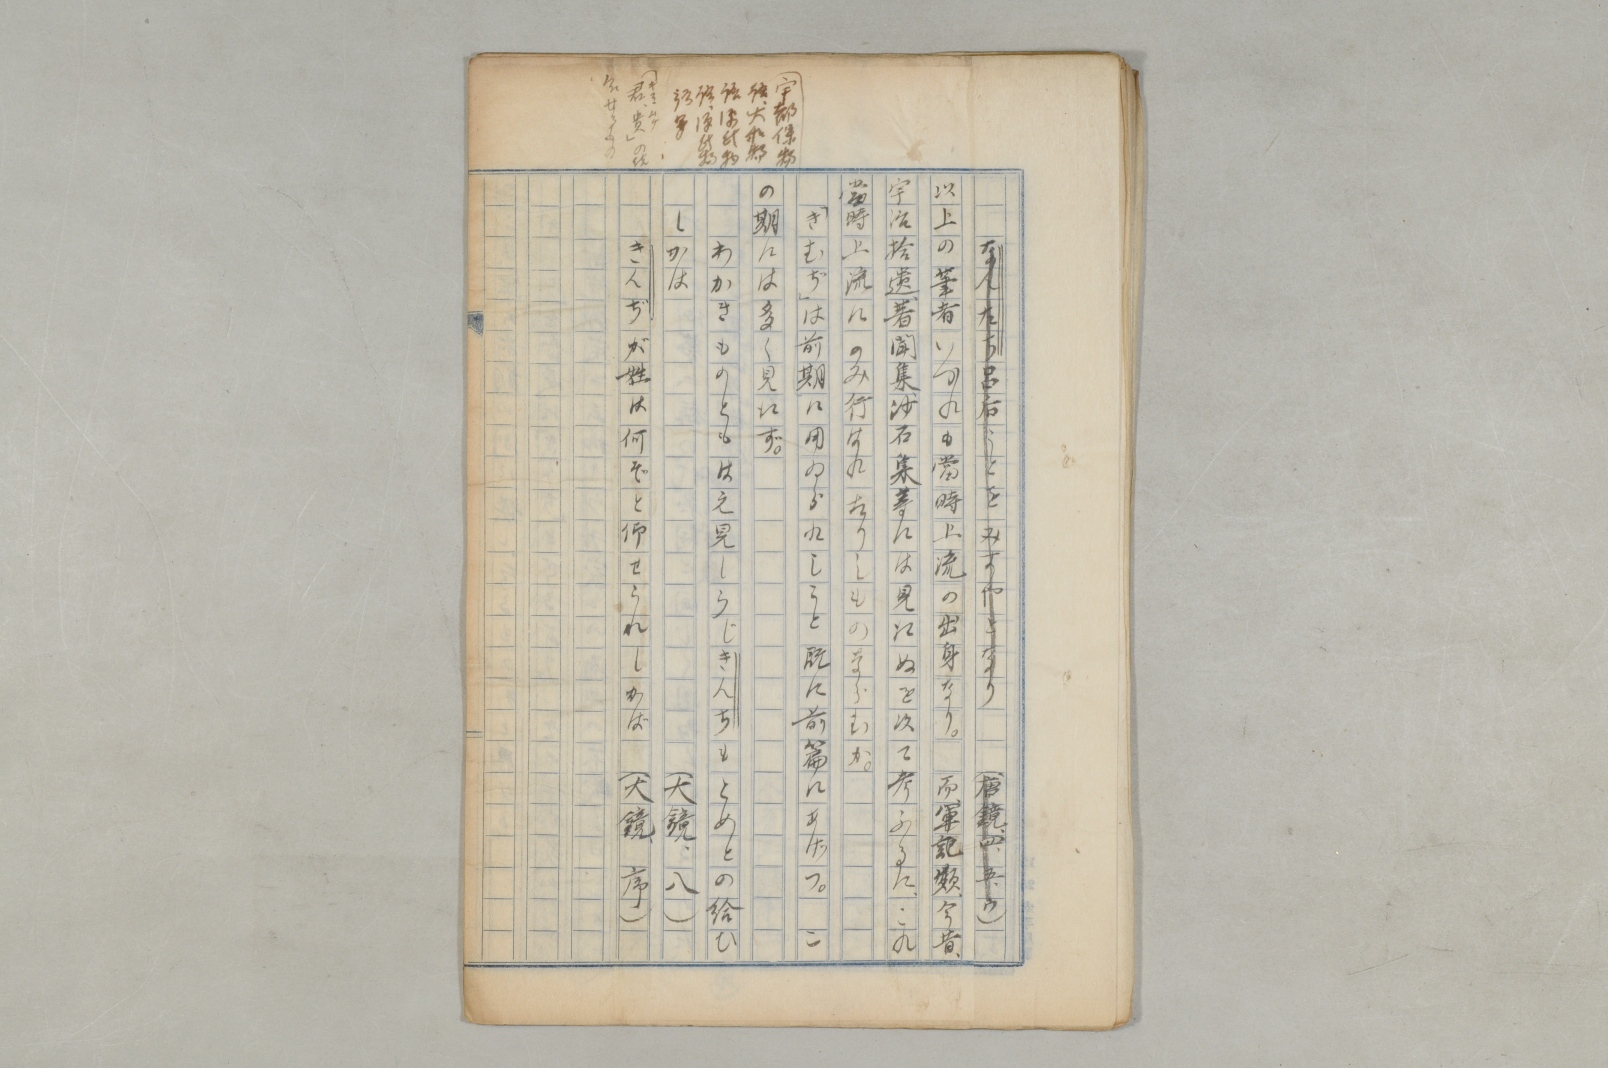 なんたち呂后のことをみすやとなり (唐鏡、四、五ウ)
以上の筆者いづれも當時上流の出身なり。 而軍記類、今昔、
宇治拾遺、著聞集、沙石集等には見にぬを次て考ふるに、これ
當時上流にのみ行はれたりしものならむか。
「きむぢ」は前期に用ゐられしこと既に前篇にあげつ。 こ
の期には多く見にず。
わかきものともは之見しらじきんちもとめとの給ひ
しかは (大鏡、八)
きんぢが姓は何ぞと仰せられしかば (大鏡、序)
宇都保物
語、大和物
語
語、源氏物
語等
「君、貴」の